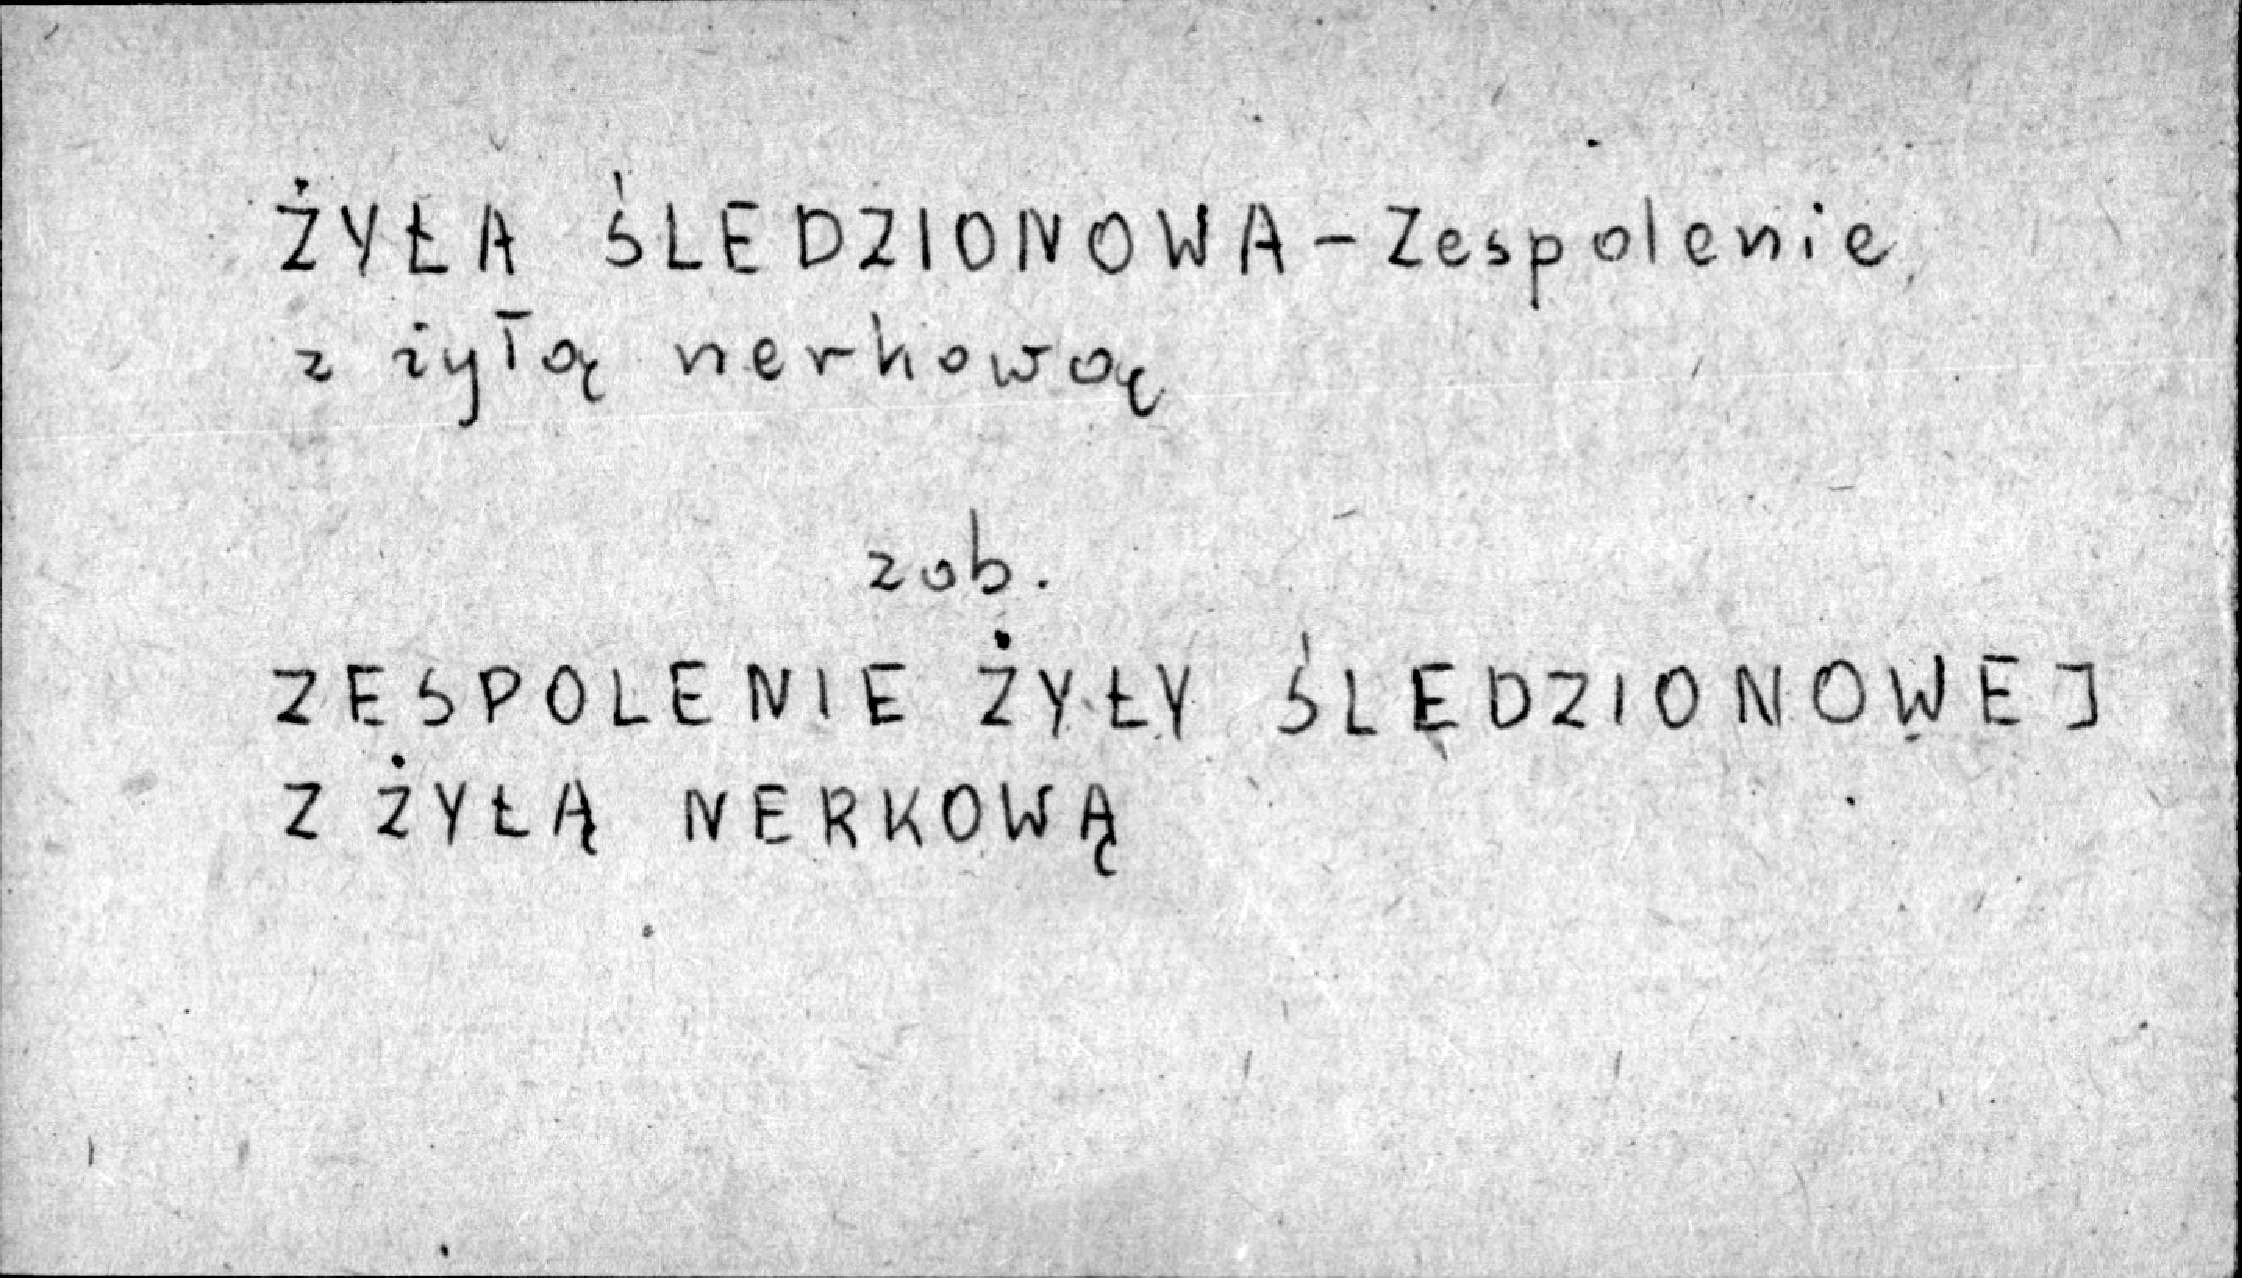 ŻYŁA ŚLEDZIONOWA - Zespolenie
z żyłą nerkową
zob.
ZESPOLENIE ŻYŁY ŚLEDZIONOWEJ
Z ŻYŁĄ NERKOWĄ